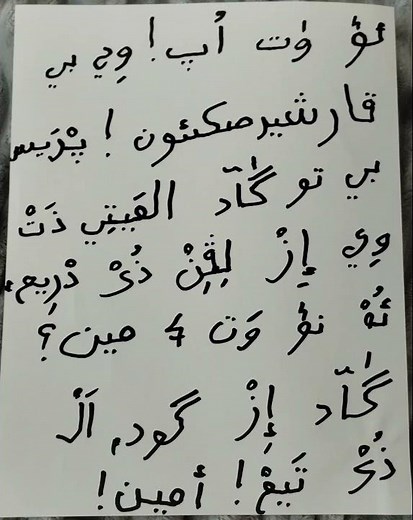 نؤ وٰت أپ! وِي بي
قارشيرصكئون! پْرَيس
بي تو گٰادّ الهَيتِي ذَتْ
وِي إِزْ لِڤِنْ ذُىْ دْرِيم،
ئُهْ نؤ وَت 4 مين؟
گٰادّ إِزْ گود, اَلْ
ذُىْ تَيمْ! أمين!